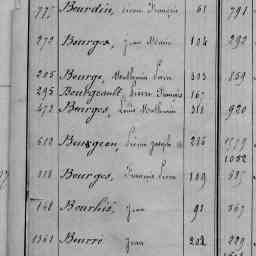 777 Bourdin, Pierre François 61 791
270 Bourges, Jean Marie 104 292
205 Bourge, Mathurin Pierre 303 159
295 Bourgeault, Pierre François 167
472 Bourges, Louis Mathurin 318 920
610 Bourgeon, Pierre Joseph 236 1779
1052
118 Bourges, François Pierre 109 637
148 Bourhis, Jean 91 367
1361 Bourri Jean 204 229